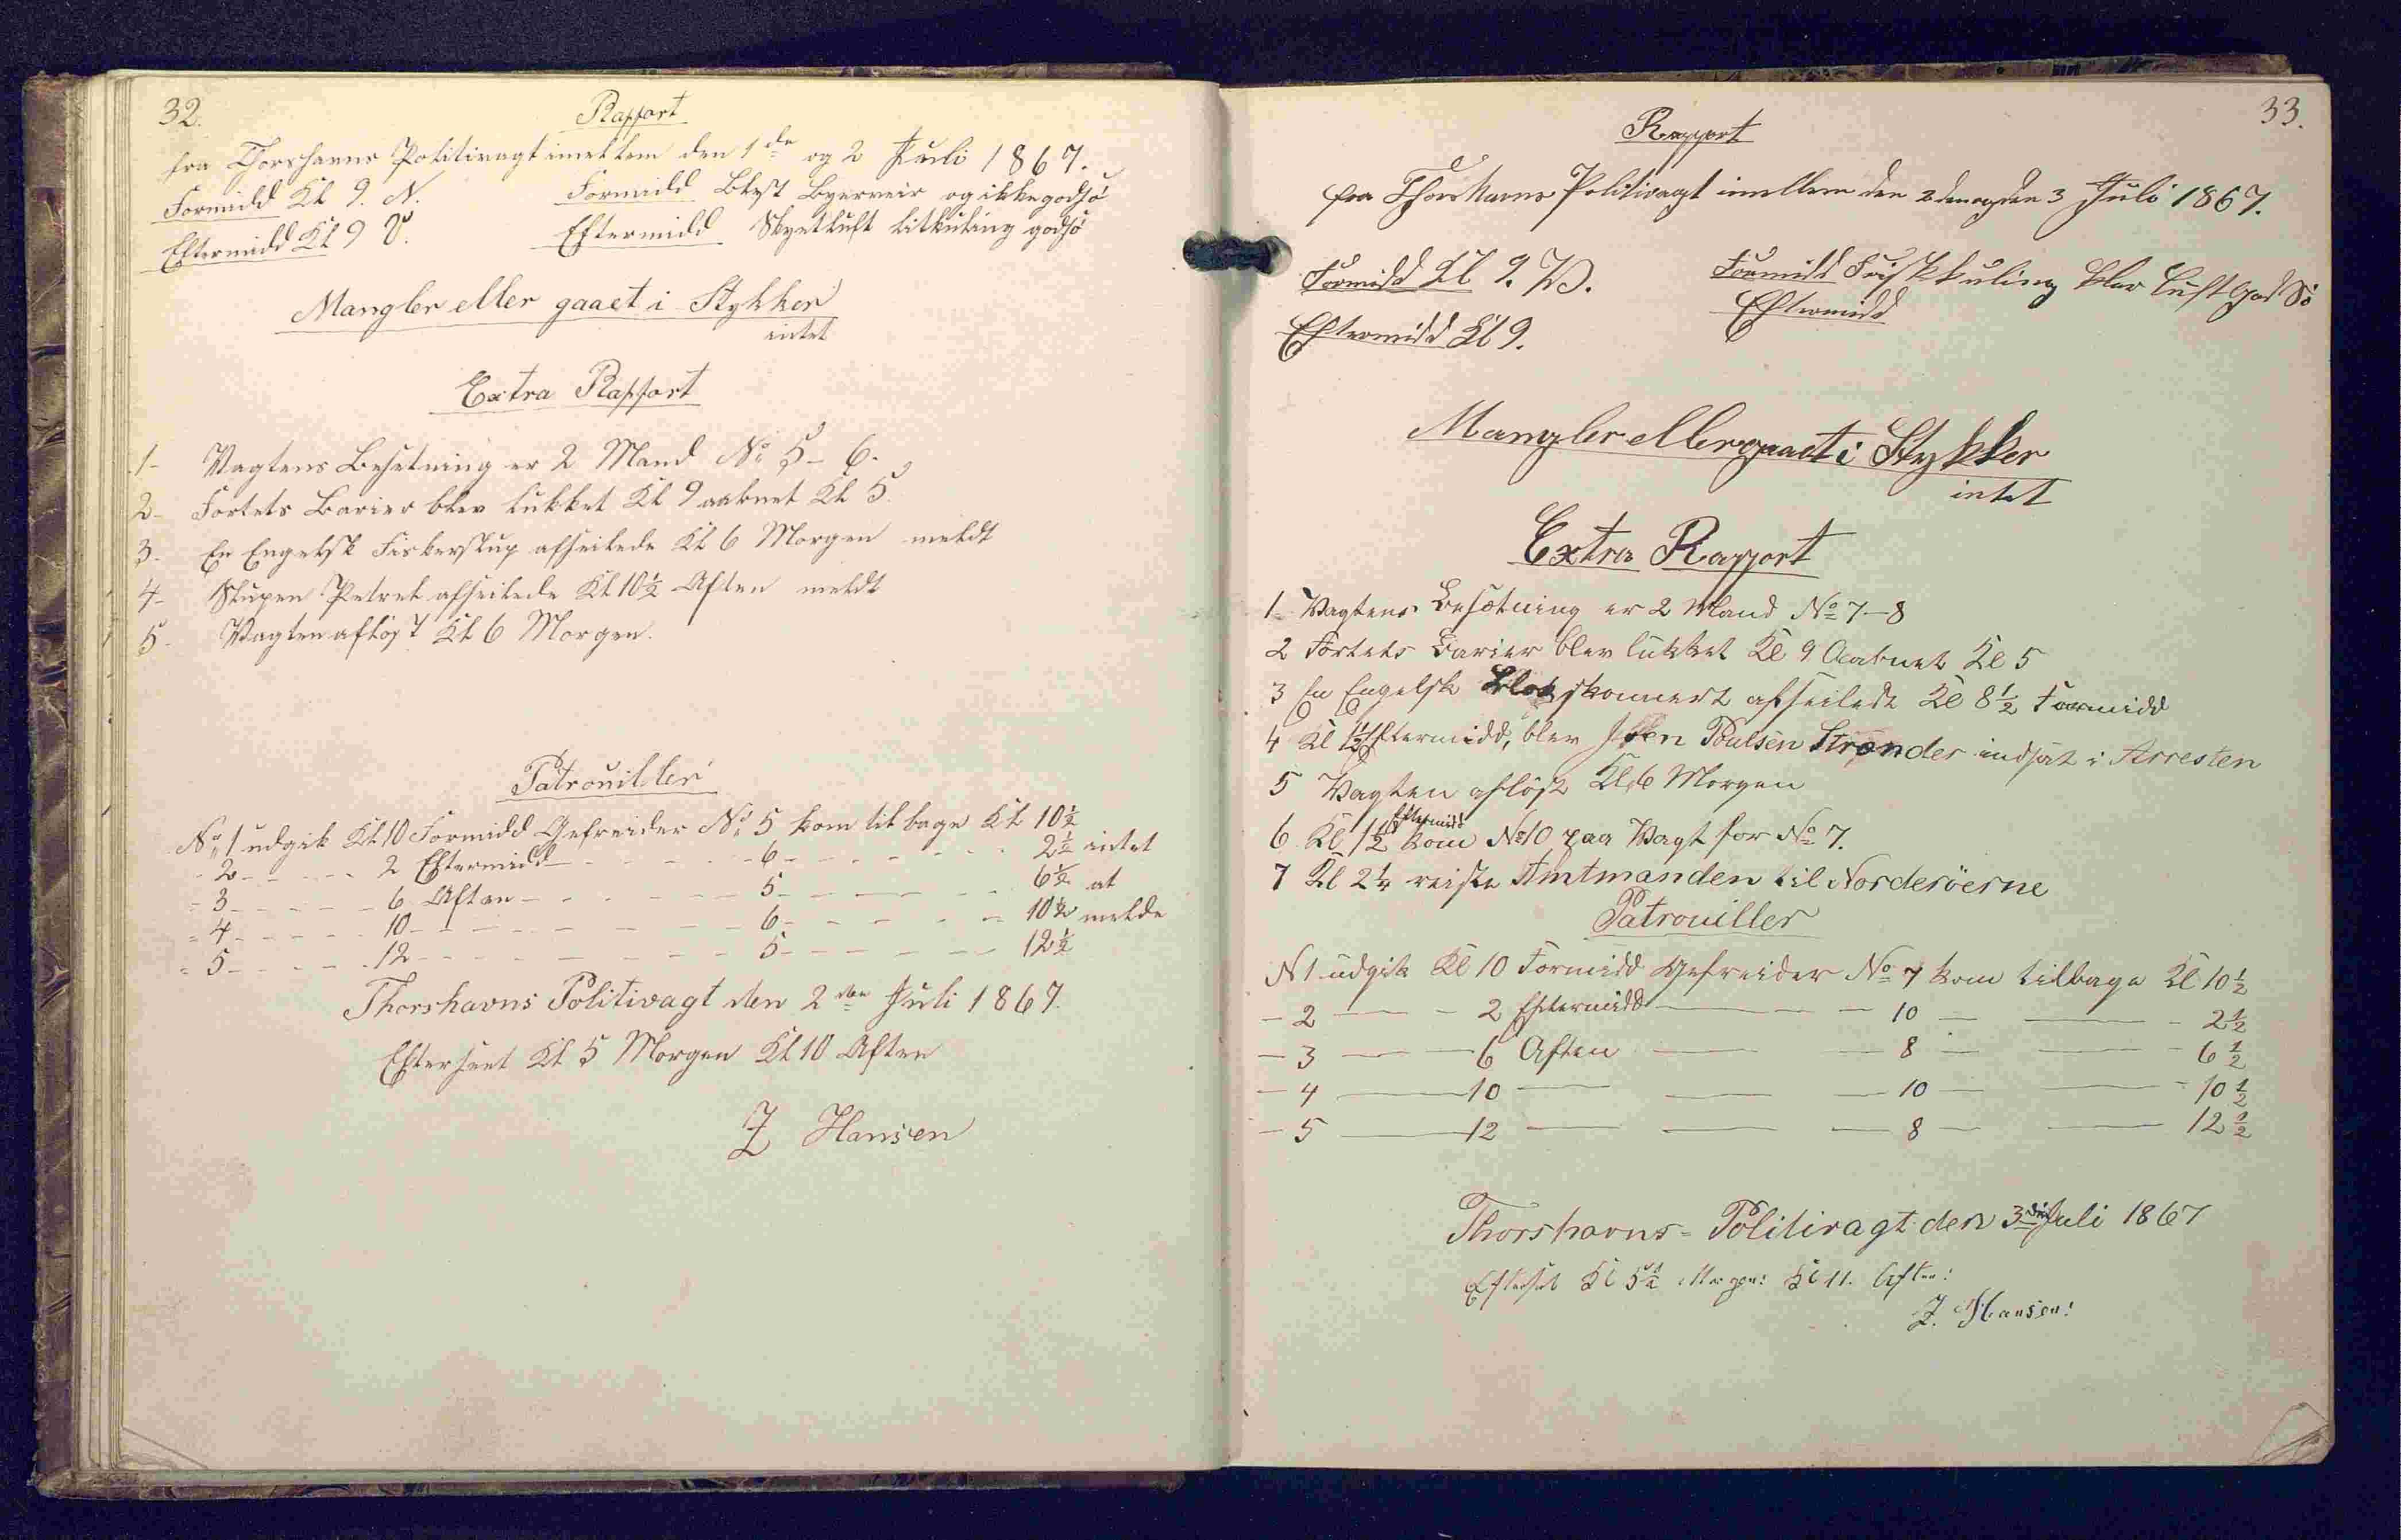 32.
Rapport
fra Thorshavns Politivagt imellem den 1de og 2 Juli 1867.
Formidd Kl 9. N. Formidd Blæst Byerveir og ikke god Sö
Eftermidd Kl 9 V. Eftermidd Skyet Luft litkuling god Sö
Mangler eller gaaet i Stykker
intet
Extra Rapport
1- Vagtens Besetning er 2 Mand No 5-6.
2- Fortets Barier blev lukket Kl 9 aabnet Kl 5
3- En Engelsk Fiskerslup afseilede Kl 6 Morgen meldt
4- Slupen Petrel afseilede Kl 10½ Aften meldt
5- Vagten aflöst Kl 6 Morgen.
Patrouiller
No 1 udgik Kl 10 Formidd Gefreider No 5 kom tilbage Kl 10½
- 2 - - - 2 Eftermidd - - - 6 - - - 2½ intet
- 3 - - - 6 Aften - - - 5 - - - 6½ at
- 4 - - - 10 - - - 6 - - - 10½ melde
- 5 - - - 12 - - - 5 - - - 12½
Thorshavns Politivagt den 2den Juli 1867.
Efterseet Kl 5 Morgen Kl 10 Aften
J Hansen
33.
Rapport
fra Thorshavns Politivagt imellem den 2den og den 3 Juli 1867.
Formidd Kl 9. Formidd Frisk kuling klar Luft God Sö
Eftermidd Kl 9. Eftermidd
Mangler eller gaaet i Stykker
intet
Extra Rapport
1- Vagtens Besætning er 2 Mand No 7-8
2 Fortets Barier blev lukket Kl 9 Aabnet Kl 5
3 En Engelsk skonnert afseilede Kl 8½ Formidd
4 Kl 1½ Eftermidd, blev Poulsen Strender indsat i Arresten
5 Vagten aflöst Kl 6 Morgen
6 Kl 1½ Eftermidd kom No 10 paa Vagt for No 7.
7 Kl 2¼ reiste Amtmanden til Norderöerne
Patrouiller
N 1 udgik Kl 10 Formidd Gefreider No 7 kom tilbage Kl 10½
- 2 — - 2 Eftermidd — — 10 — — - 2½
- 3 — — 6 Aften — — 8 — — - 6½
- 4 — 10 — — — 10 — — - 10½
- 5 — 12 — — — 8 — — 12½
Thorshavns - Politivagt den 3die Juli 1867
Efterset Kl 5½ Morgen: Kl 11. Aften:
J. Hansen: